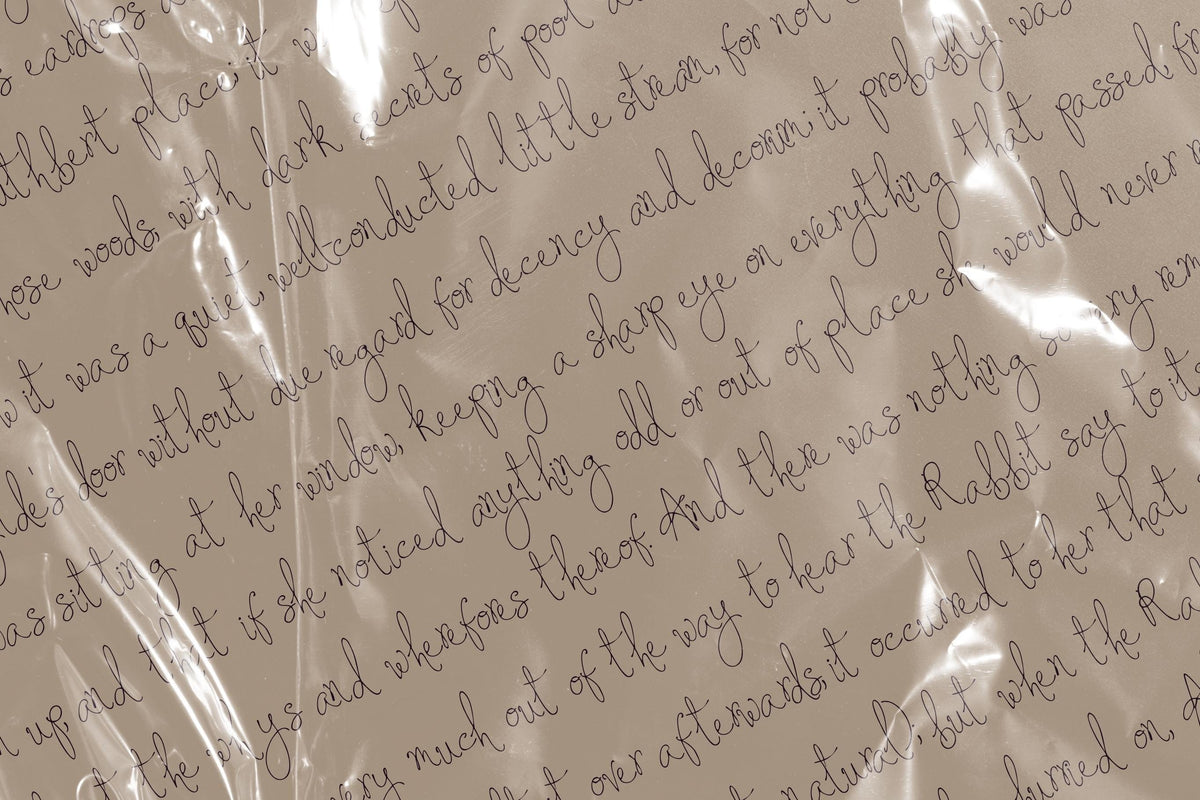 eardrops
place; it
woods, with dark secrets of pool
it was a quiet, well-conducted little stream, for not
door without due regard for decency and decorum; it probably was
was sitting at her window, keeping a sharp eye on everything that passed,
up, and that if she noticed anything odd or out of place she would never
the whys and wherefores thereof. And there was nothing so very
very much out of the way to hear the Rabbit say to
over afterwards, it occurred to her that
natural); but when the
hurried on,